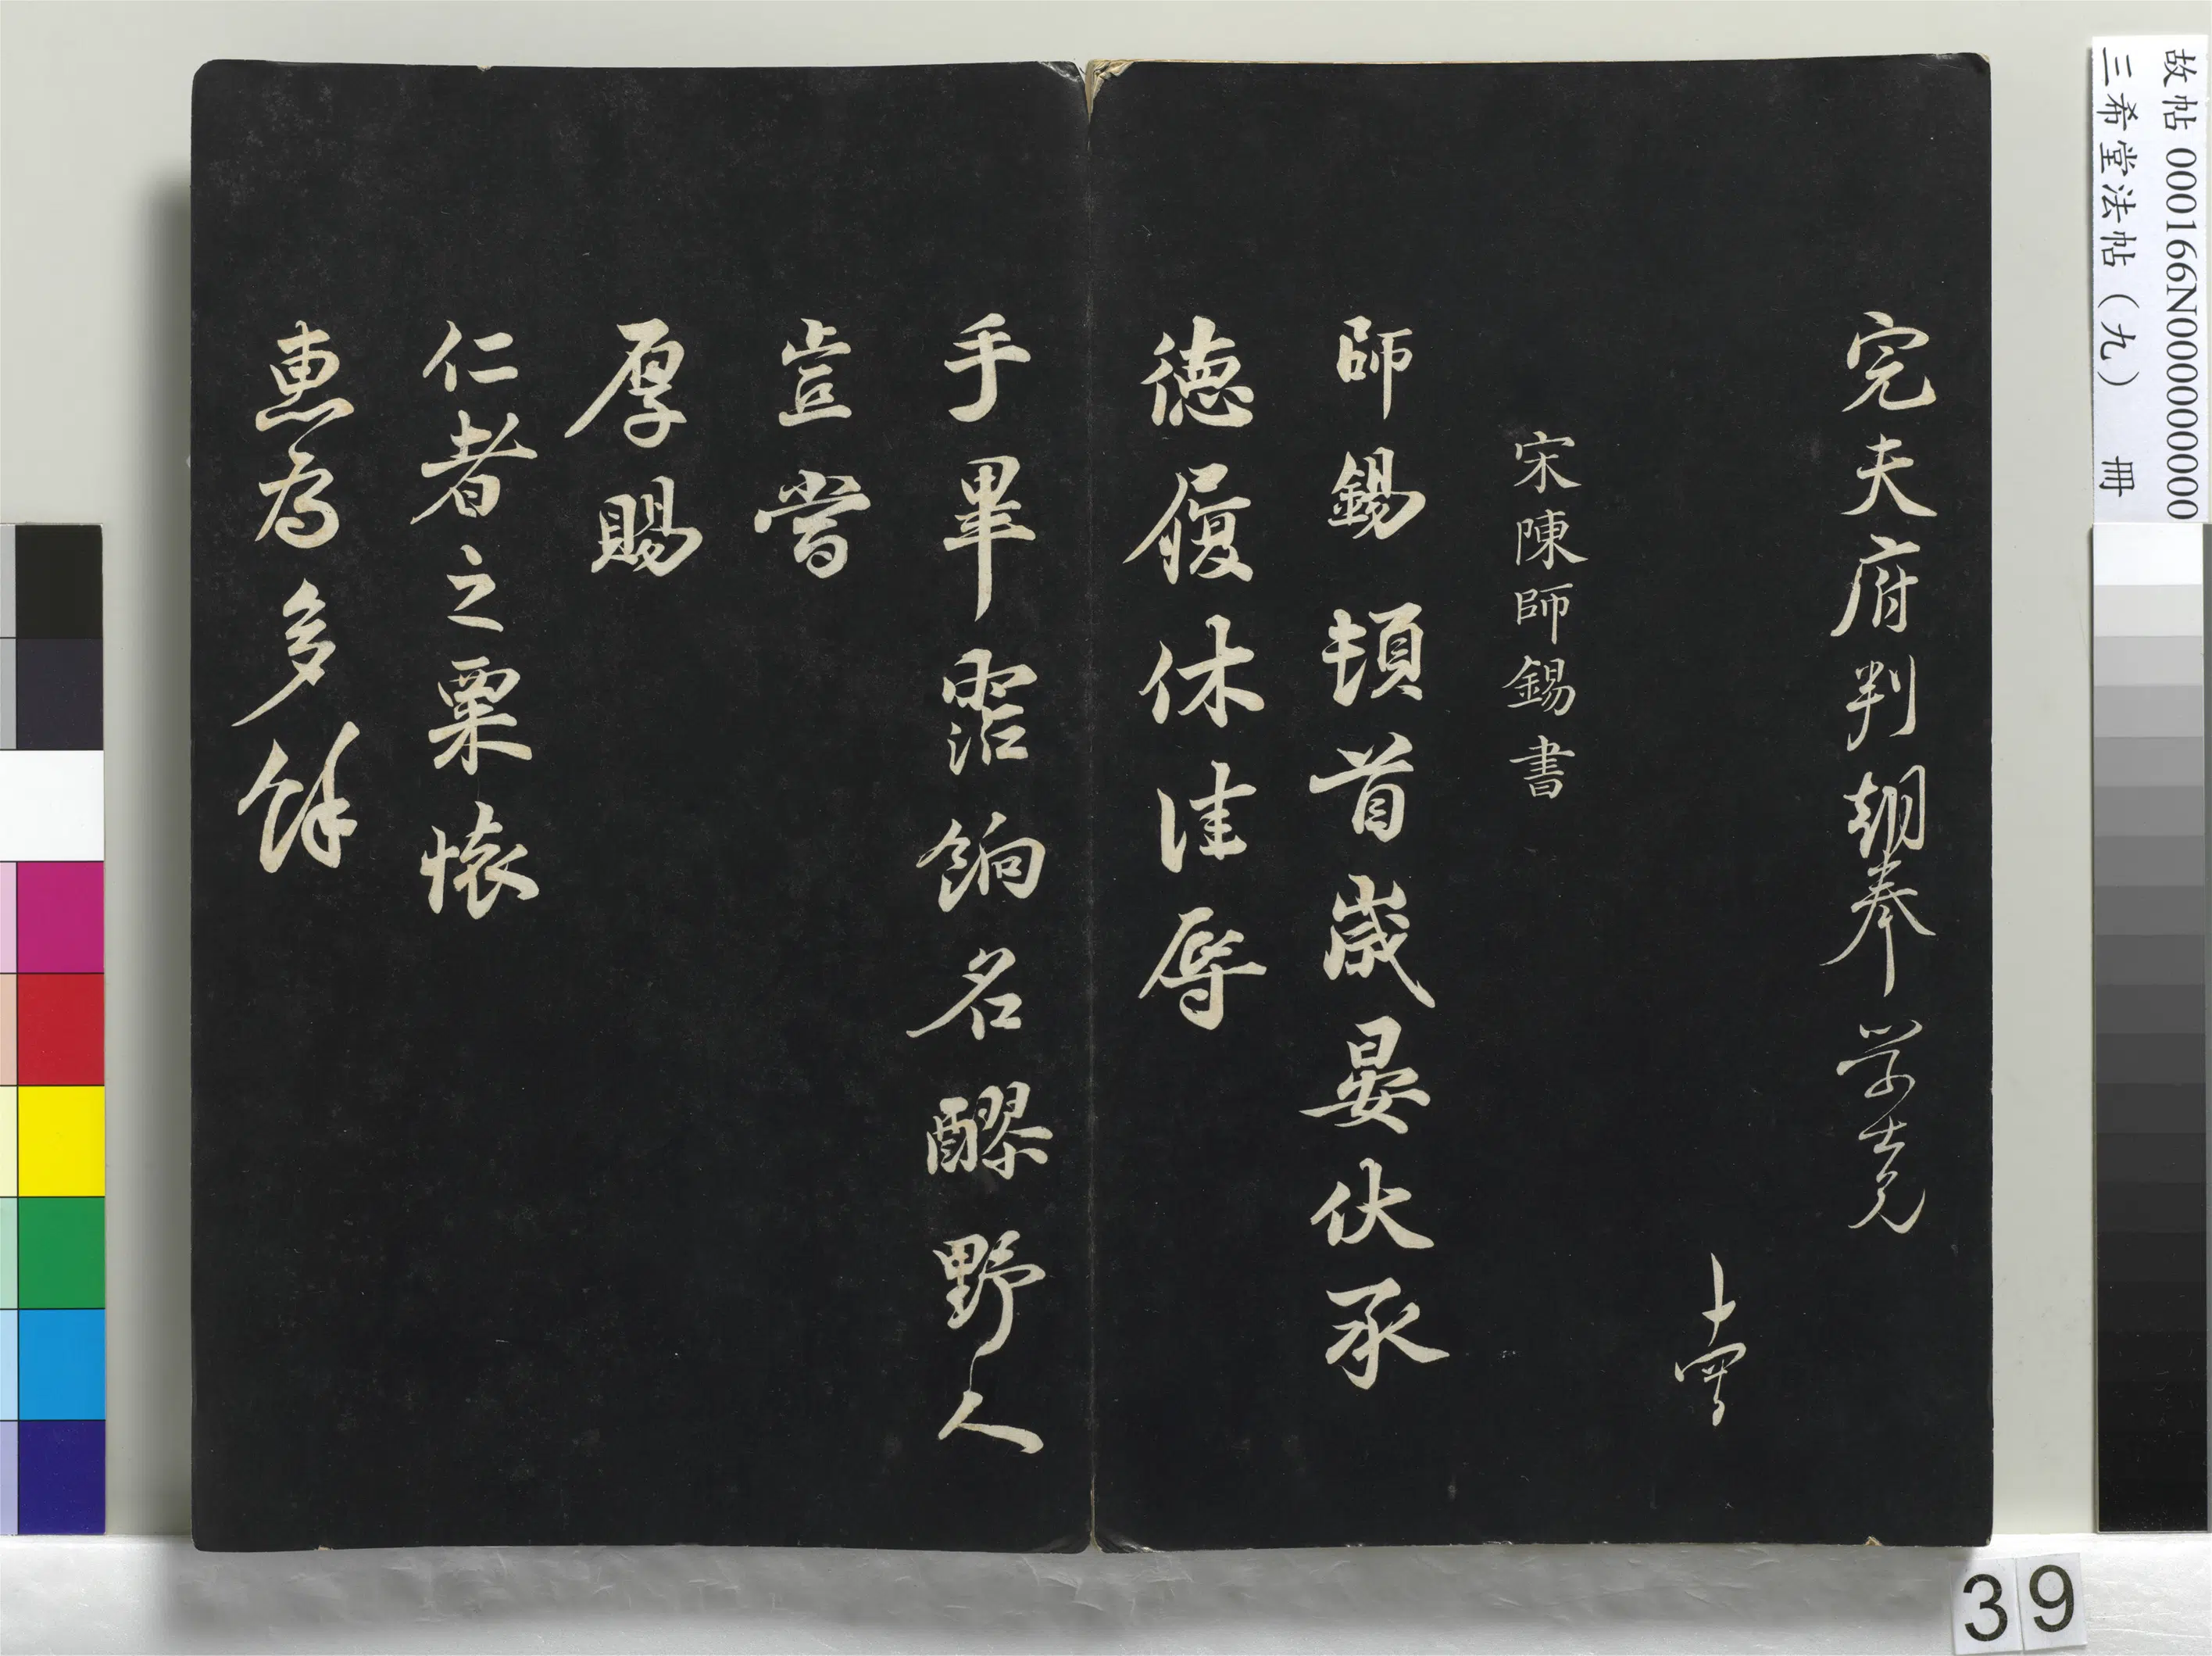 故帖 000166N000000000
三希堂法帖（九） 冊
完夫府判朝奉学士兄
宋陳師錫書
師錫頓首歲晏伏承
德履休佳辱
手畢霑餉名醪野人
豈當
厚賜
仁者之粟懷
惠為多餘
39